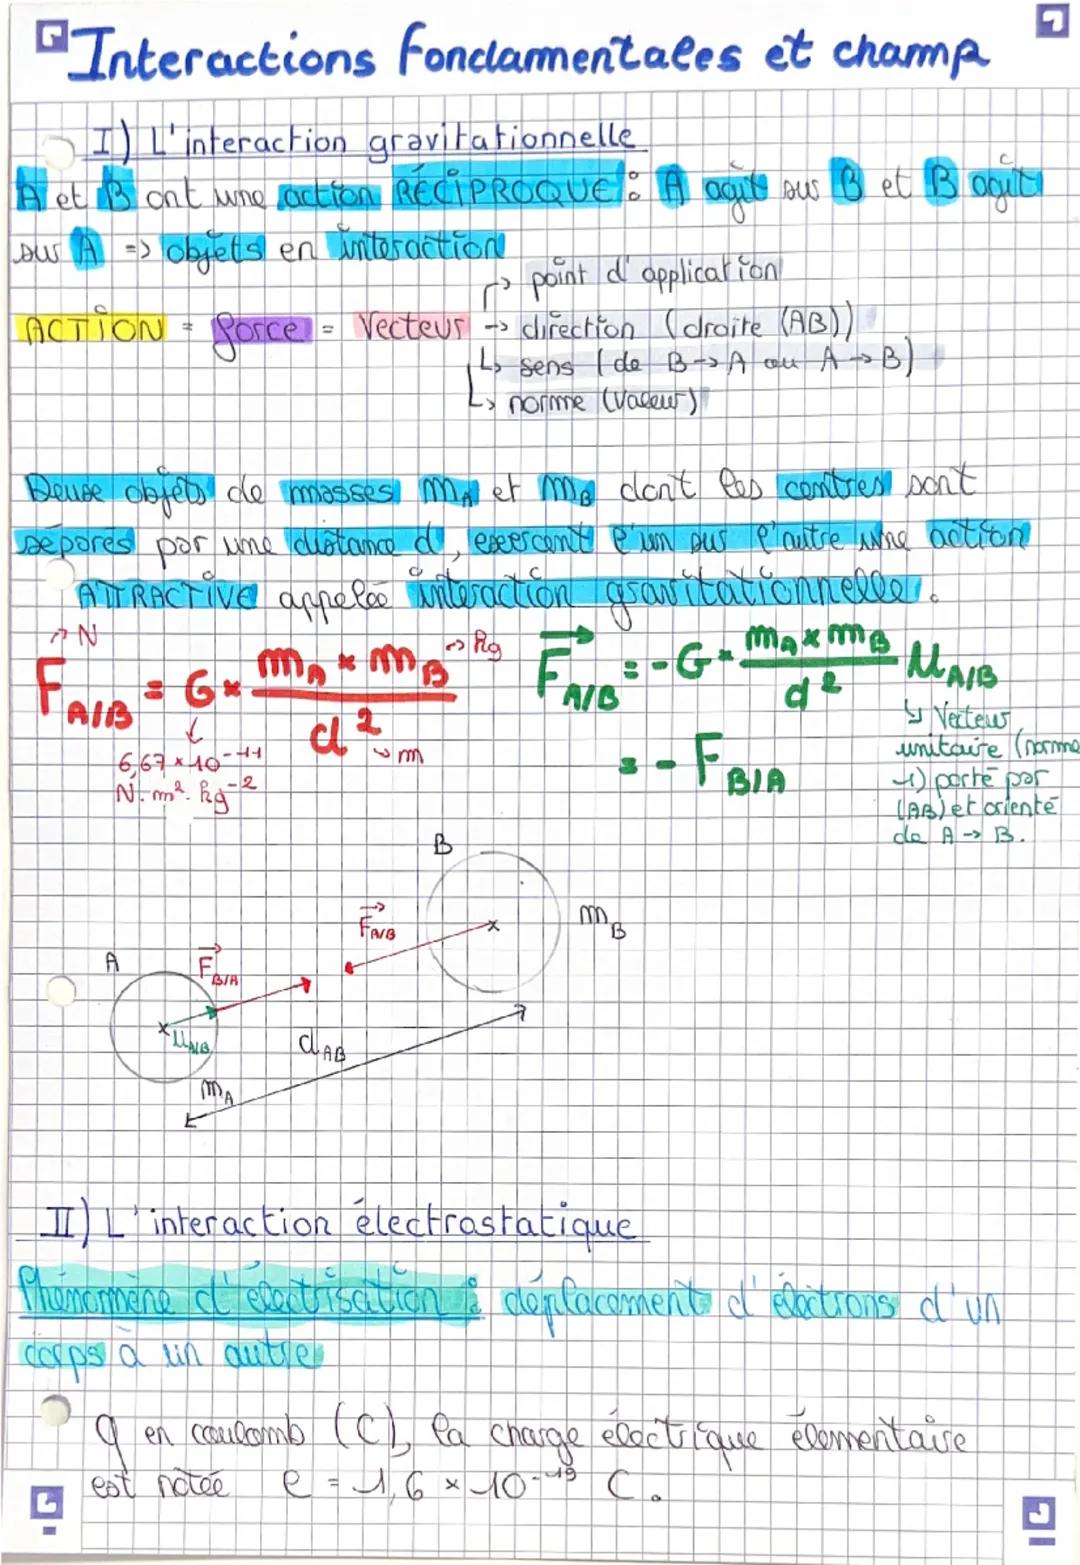 Interactions fondamentales et champ
I) L'interaction gravitationnelle
A et B ont une action RÉCIPROQUE : A agit sur B et B agit
sur A => objets en interaction
→ point d'application
ACTION = force = Vecteur → direction (droite (AB))
↳ sens (de B → A ou A → B)
↳ norme (valeur)
Deux objets de masses mA et mB dont les centres sont
séparés par une distance d, exercent l'un sur l'autre une action
ATTRACTIVE appelée interaction gravitationnelle.
→ N
FA/B = G × mA × mB / d² → kg
→ m
6,67 × 10⁻¹¹
N. m². kg⁻²
FA/B = - G × mA × mB / d² UA/B
= - FB/A
↳ Vecteur
unitaire (norme
1) porté par
(AB) et orienté
de A → B.
B
mB
FA/B
A
FB/A
UA/B
dAB
mA
II) L'interaction électrostatique
Phénomène d'électrisation : déplacement d'électrons d'un
corps à un autre
q en coulomb (C), la charge électrique élementaire
est notée e = 1,6 × 10⁻¹⁹ C.